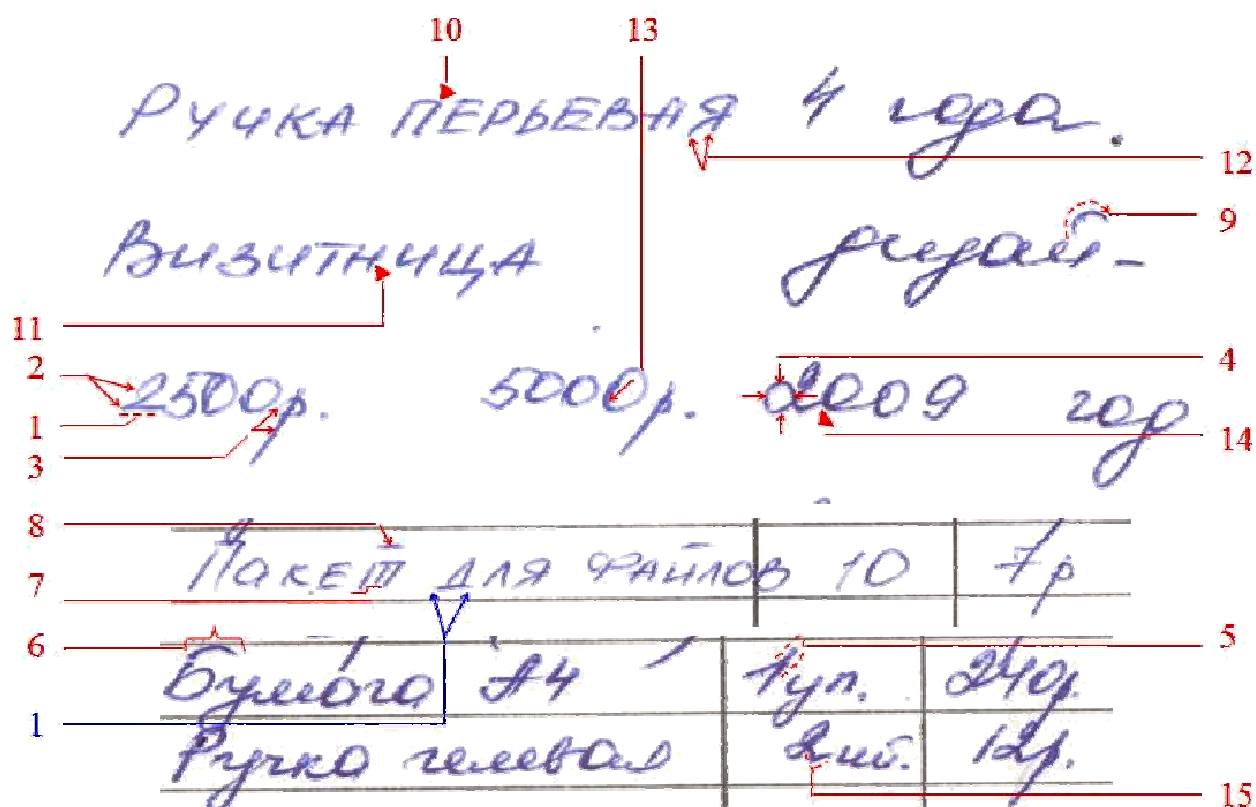 10 13
Ручка перьевая 4 года.
12
9
Визитница дизай-
11
2 4
2500р. 5000р. 2009 год
1
14
3
8
Пакет для файлов 10 7р
7
6 5
Бумага А4 1уп. 240р.
1
Ручка гелевая 2шт. 12р.
15